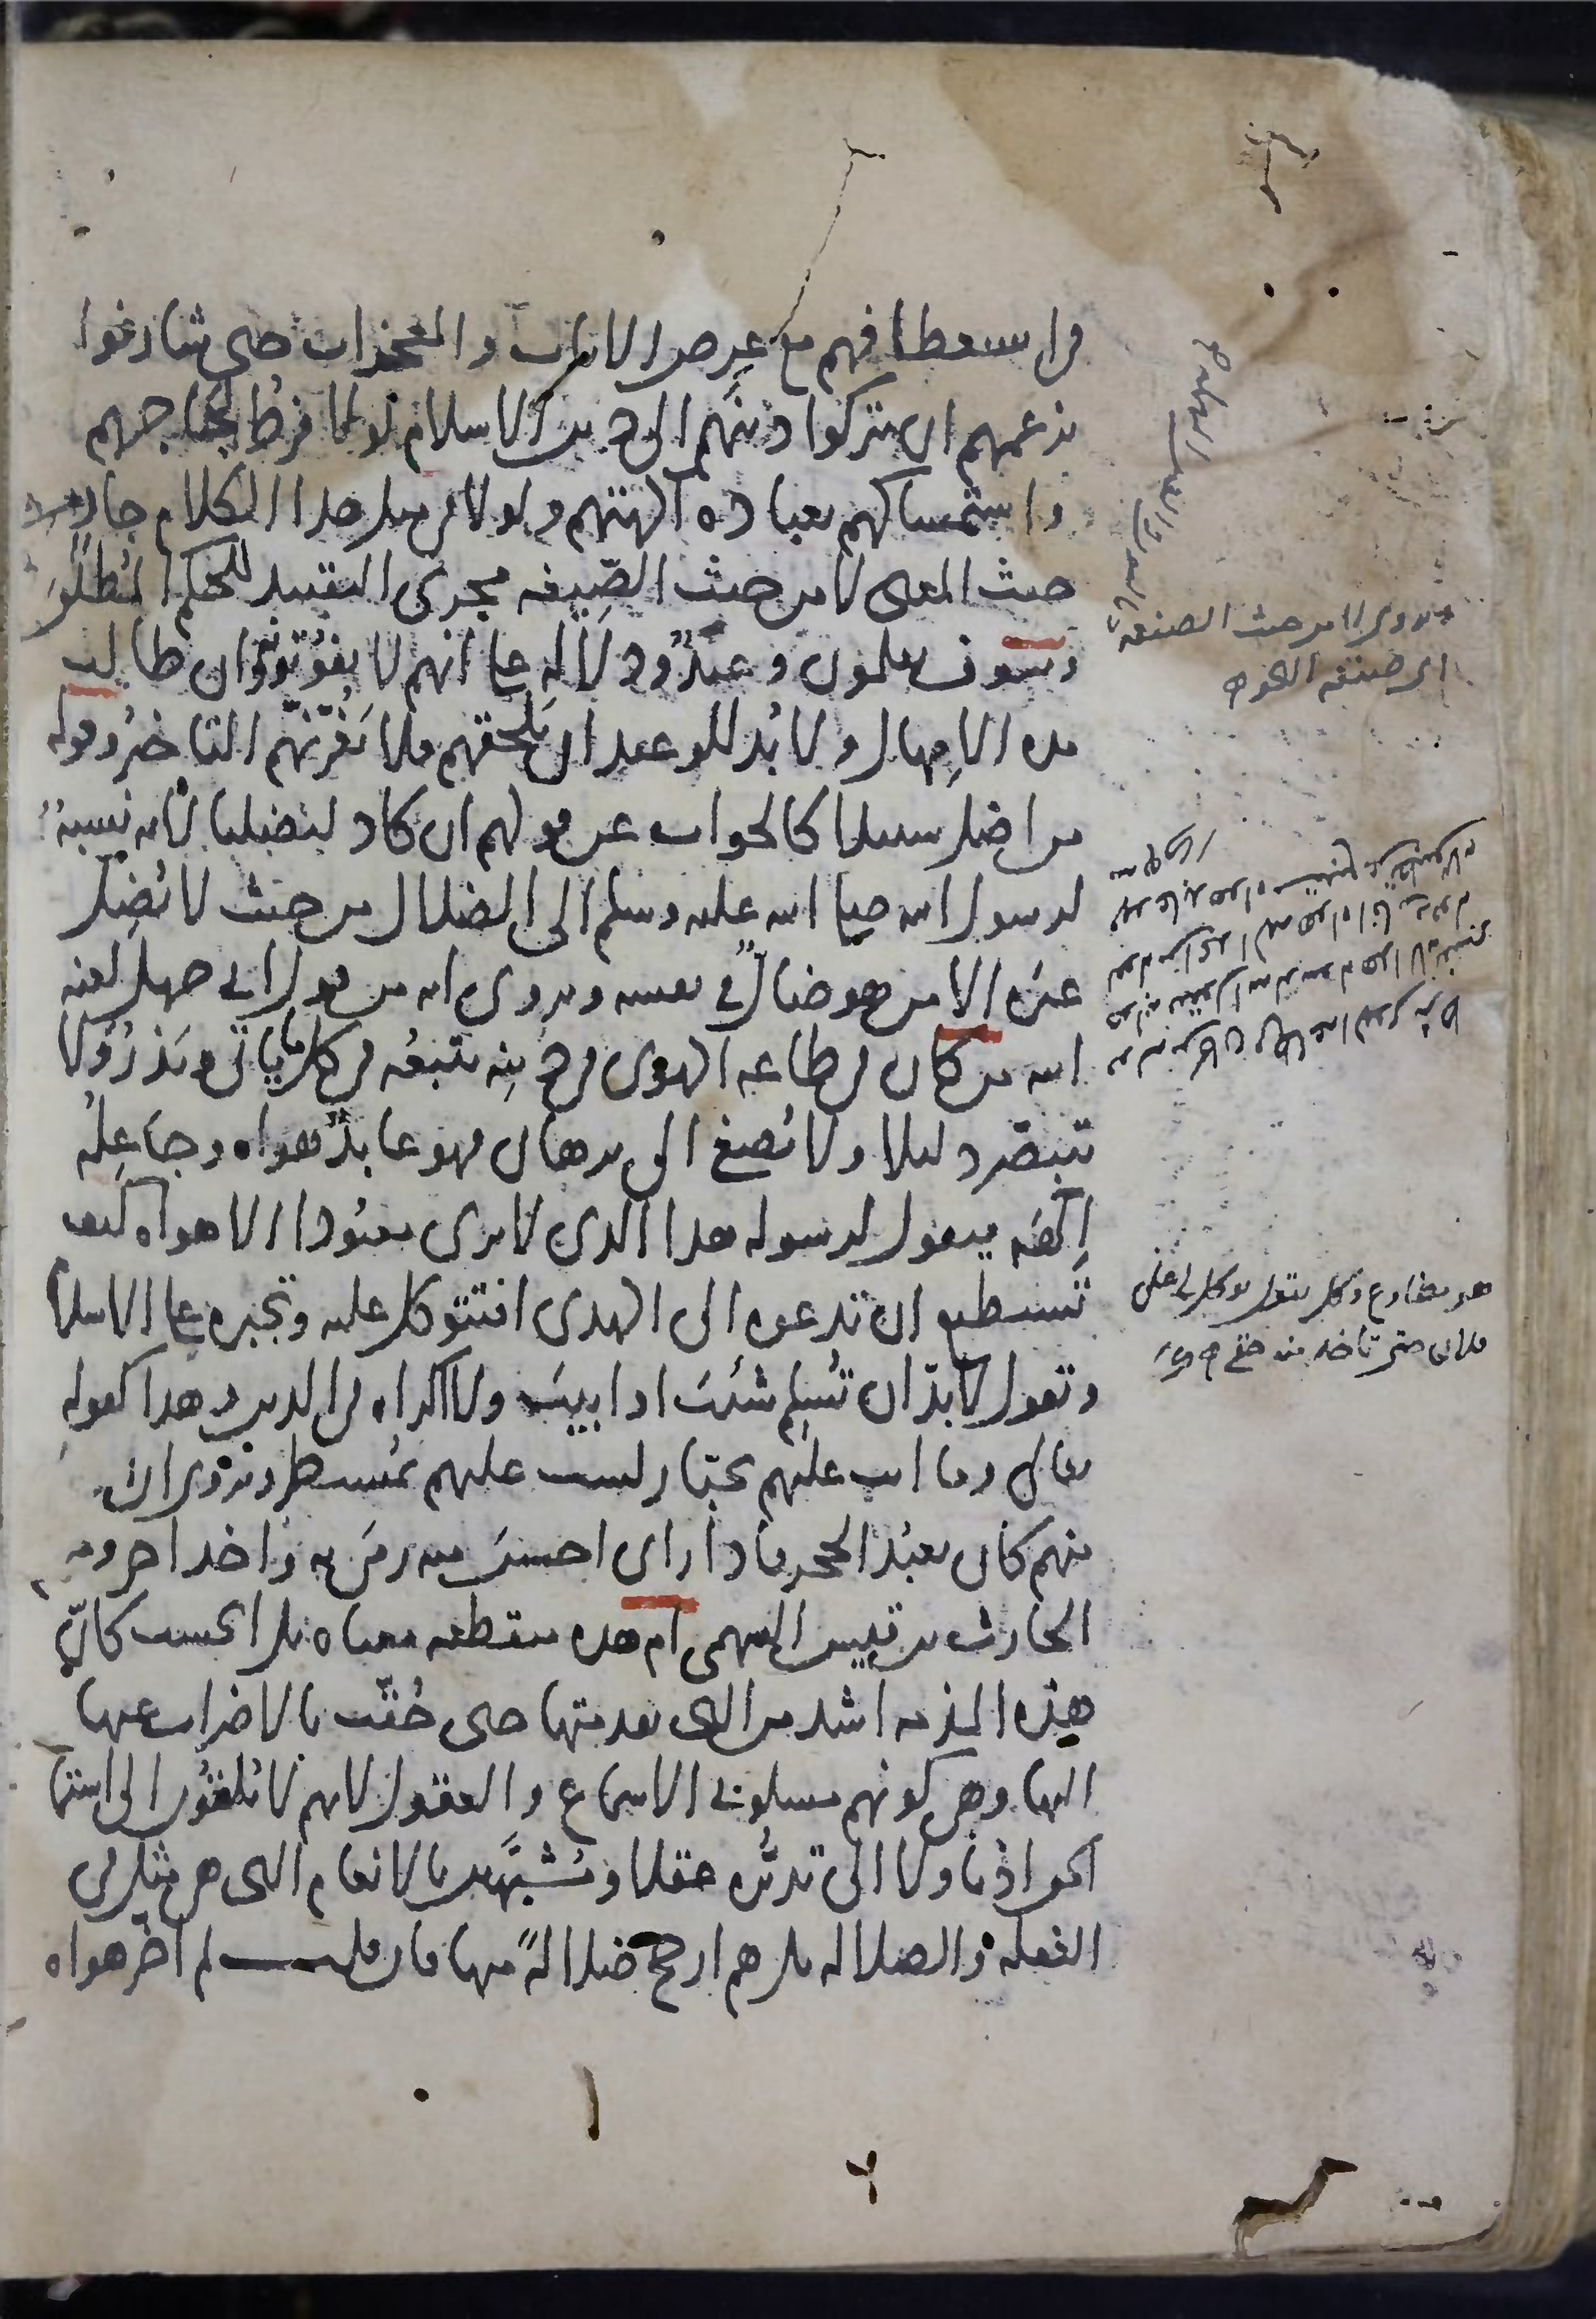 في استعطافهم مع عرض الآيات والمعجزات حتى شارفوا
بزعمهم ان يتركوا دينهم الى دين الاسلام لولا فرط لجاجهم
واستمساكهم بعبادة آلهتهم ولولا في مثل هذا الكلام جار من
حيث المعنى لا من حيث الصيغه مجرى التقييد للحكم المطلق
وسوف يعلمون وعيد ودلاله على انهم لا يفوتونه وان طالت
مده الامهال ولا بد للوعيد ان يلحقهم فلا يغرنهم التاخير وقوله
من اضل سبيلا كالجواب عن قولهم ان كاد ليضلنا لانه نسبة
لرسول الله صلى الله عليه وسلم الى الضلال من حيث لا يضل
غيره الا من هو ضال في نفسه ويروى انه من قول ابي جهل لعنه
الله من كان في طاعه الهوى في دينه يتبعه في كل ما ياتي ويذر لا
يتبصر دليلا ولا يصغي الى برهان فهو عابد هواه وجاعله
إلهه فيقول لرسوله هذا الذي لا يرى معبودا الا هواه كيف
تستطيع ان تدعوه الى الهدى افتتوكل عليه وتجبره على الاسلام
وتقول لا بد ان تسلم شئت او ابيت ولا اكراه في الدين وهذا كقوله
تعالى وما انت عليهم بجبار لست عليهم بمسيطر ويروى ان
منهم كان يعبد الحجر فاذا راى احسن منه رمى به واخذ اخر ومنهم
الحارث بن قيس السهمي ام هذه منقطعه معناه بل اتحسب كان
هذه المذمه اشد من التي تقدمتها حتى حقت بالاضراب عنها
اليها وهي كونهم مسلوبي الاسماع والعقول لانهم لا يلقون الى استماع
الحق اذنا ولا الى تدبره عقلا ومشبهين بالانعام التي هي مثل في
الغفلة والضلاله بل هم ارجح ضلالة منها فان قلت لم اخر هواه
لا من حيث الصنعه
هو مضارع وكل يقول يوكل لي على
فلان حتى تاخذ منه حقي